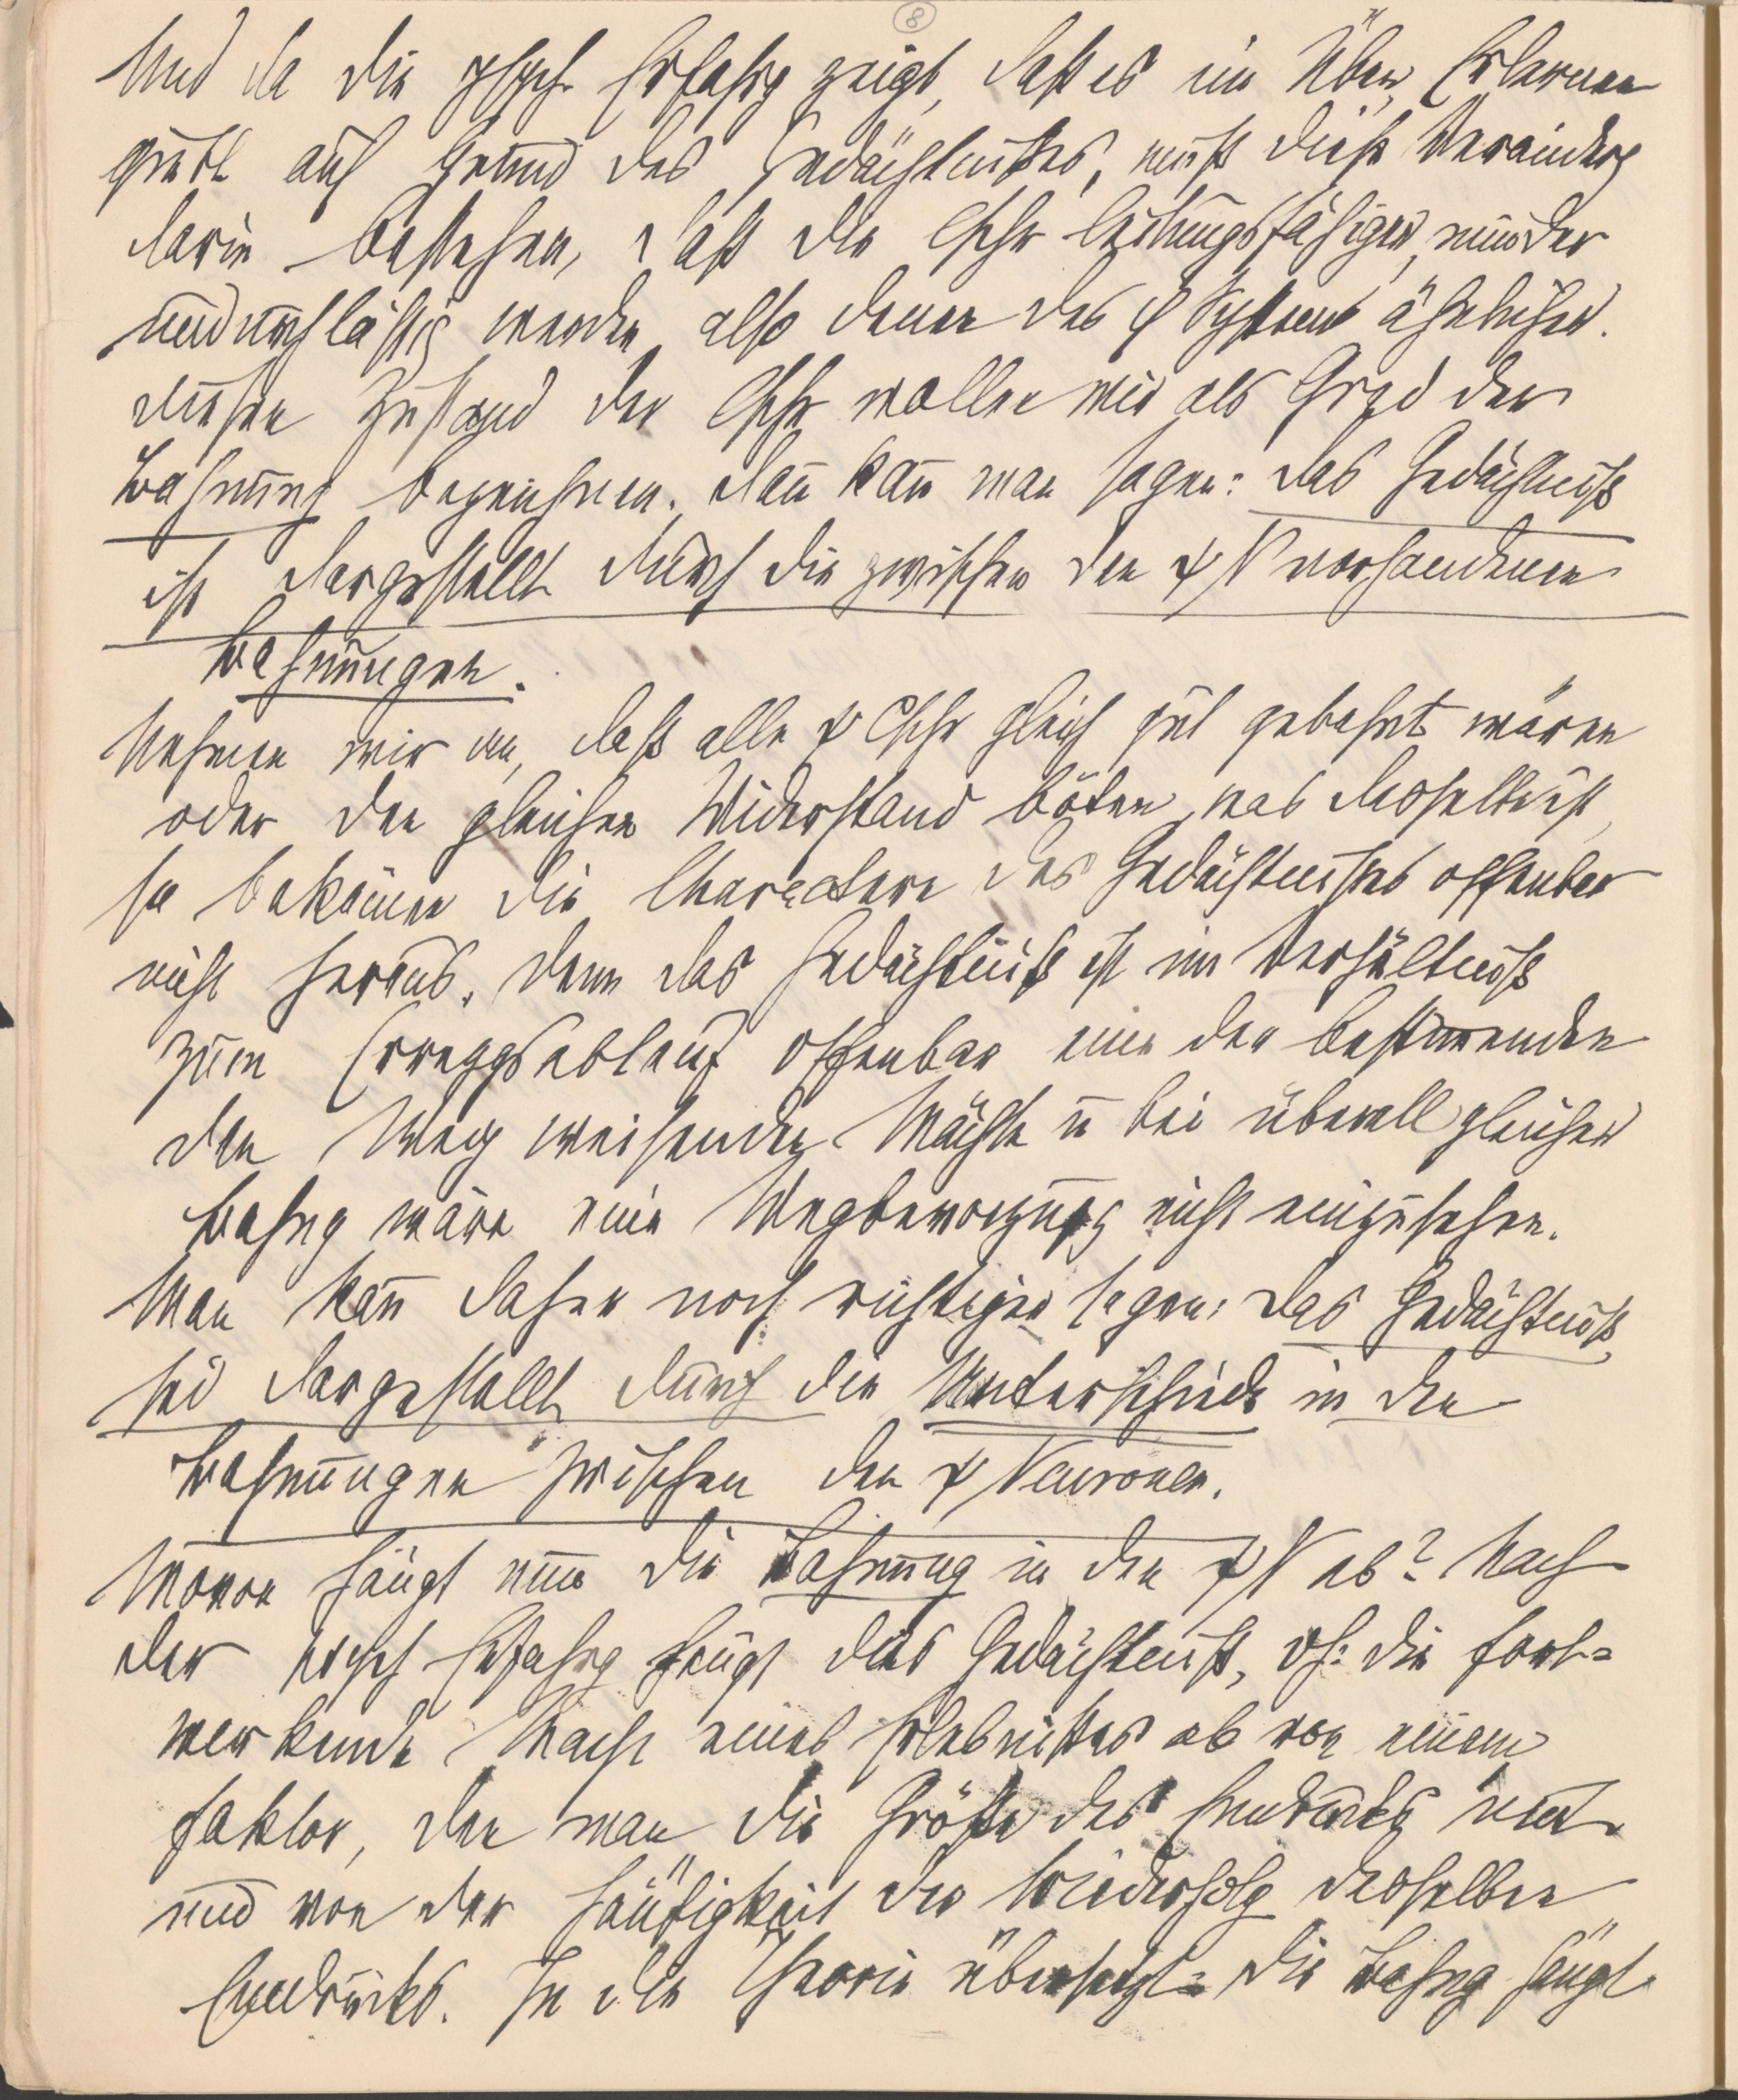 8
Und da die psych Erfahrg zeigt, daß es ein Über Erlernen
giebt auf Grund des Gedächtnißes, muß diese Veränderg
darin bestehen, daß die Cschr leitungsfähiger, minder
undurchläßig werden, also denen des φ Systems ähnlicher.
Diesen Zustand der Cschr wollen wir als Grad der
Bahnung bezeichnen. Dan̄ kan̄ man sagen: Das Gedächtniß
ist dargestellt durch die zwischen den ψ N vorhandenen
Bahnungen.
Nehmen wir an, daß alle ψ Cschr gleich gut gebahnt wären
oder den gleichen Widerstand böten, was dasselbe ist,
so bekäm̄en die Charactere des Gedächtnißes offenbar
nicht heraus. Denn das Gedächtniß ist im Verhältniß
zum Erreggsablauf offenbar eine der bestim̄enden
den Weg weisenden Mächte u bei überall gleicher
Bahng wäre eine Wegbevorzugg nicht einzusehen.
Man kan̄ daher noch richtiger sagen: Das Gedächtniß
sei dargestellt durch die Unterschiede in den
Bahnungen zwischen den ψ Neuronen.
Wovon hängt nun die Bahnung in den ψ N ab? Nach
der psych Erfahrg hängt das Gedächtniß, dh: die fort=
wirkende Macht eines Erlebnißes ab von einem
Faktor, den man die Größe des Eindrucks nent
und von der Häufigkeit der Wiederholg desselben
Eindrucks. In die Theorie übersetzt: Die Bahng hängt